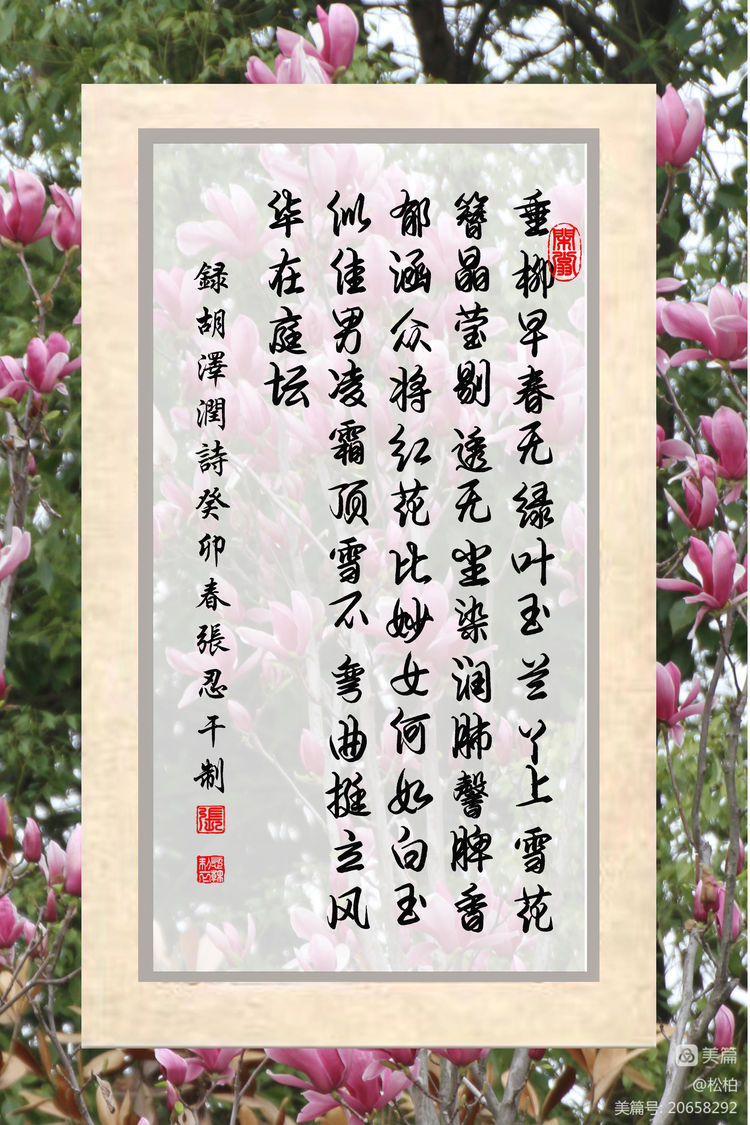 垂柳早春无绿叶玉兰丫上雪花
簪晶莹剔透无尘染润肺馨脾香
郁涵众将红花比妙女何如白玉
似佳男凌霜顶雪不弯曲挺立风
华在庭坛
録胡澤潤詩癸卯春張忍干制
張
美篇
@松柏
美篇号: 20658292